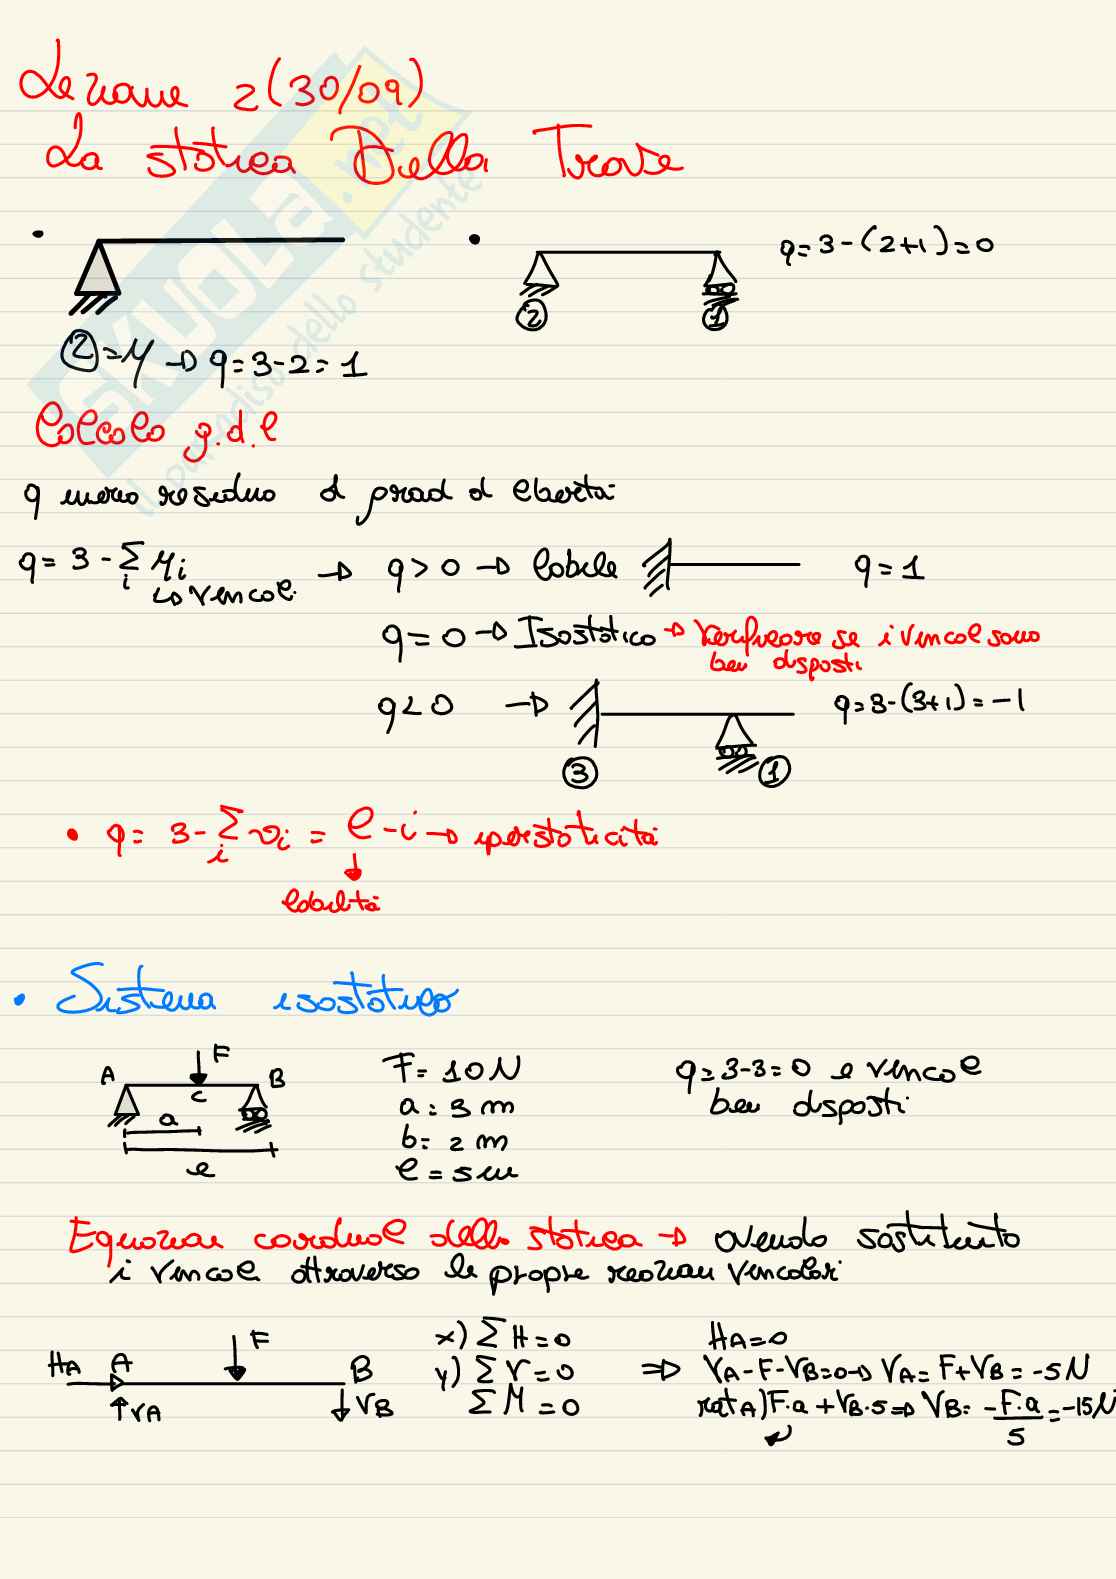 Lezione 2 (30/09)
La statica Della Trave
q=3-(2+1)=0
2 1
2 = μ → q=3-2=1
Calcolo g.d.l
q numero residuo di gradi di libertà
q= 3 - Σi μi → q>0 → labile q=1
↳ vincoli
q=0 → Isostatico → Verificare se i vincoli sono
ben disposti
q<0 → q=3-(3+1)=-1
3 1
• q= 3-Σi vi = l-i → iperstaticità
↓
labilità
• Sistema isostatico
A F B
C
a
l
F= 10N
a= 3 m
b= 2 m
l = 5 m
q=3-3=0 e vincoli
ben disposti
Equazioni cardinali della statica → avendo sostituito
i vincoli attraverso le proprie reazioni vincolari
HA A F B
VA VB
x) ΣH=0
y) ΣV=0
ΣM=0
⇒ HA=0
VA-F-VB=0→ VA=F+VB=-5N
rot A) F·a+VB·5⇒ VB= -F·a/5=-15N
SKUOLA.net
il paradiso dello studente